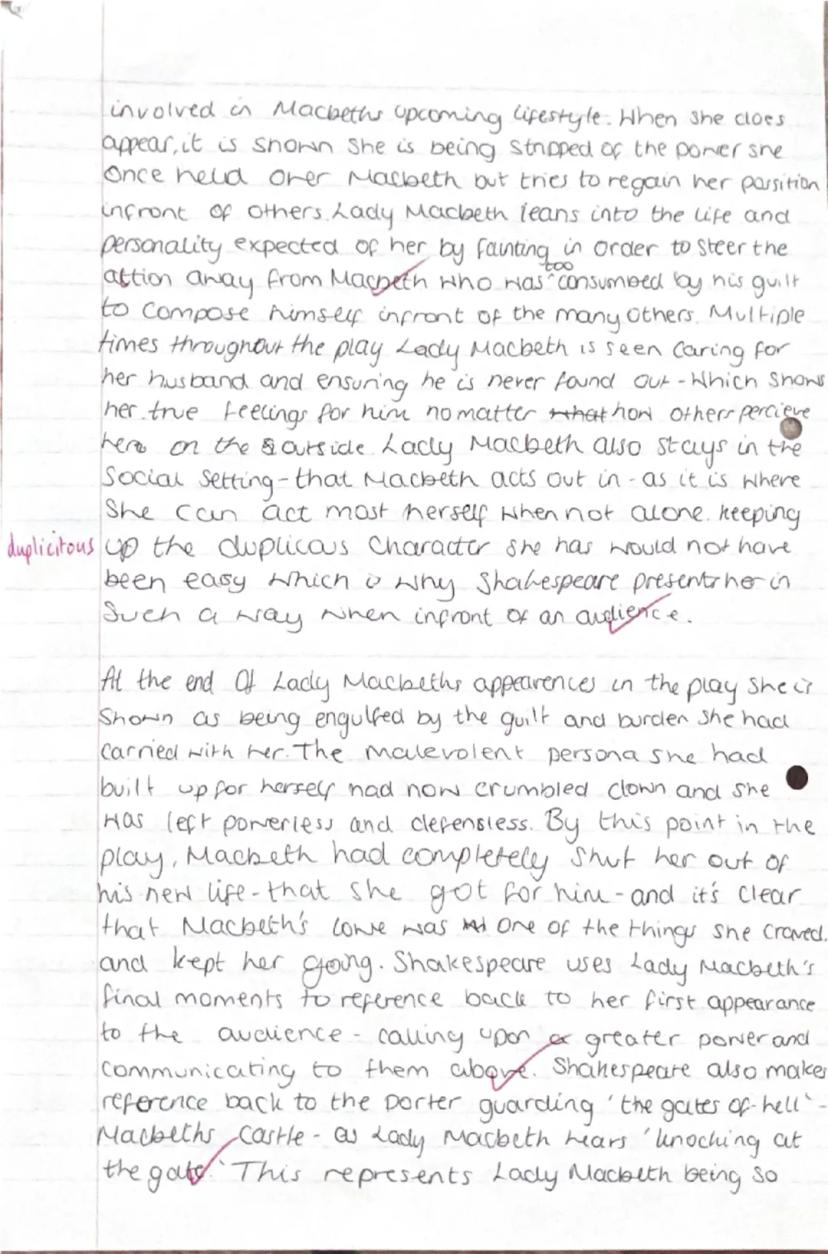 involved in Macbeths upcoming lifestyle. When she does
appear, it is shown she is being stripped of the power she
once held over Macbeth but tries to regain her parsition
infront of others. Lady Macbeth leans into the life and
personality expected of her by fainting in order to steer the
attion away from Macbeth who was too consumbed by his guilt
to compose himself infront of the many others. Multiple
times throughout the play Lady Macbeth is seen caring for
her husband and ensuring he is never found out - which shows
her true feelings for him no matter that how others percieve
her on the outside. Lady Macbeth also stays in the
social setting - that Macbeth acts out in - as it is where
she can act most herself when not alone. Keeping
duplicitous up the duplicous character she has would not have
been easy which is why Shakespeare presents her in
such a way when infront of an audience.
At the end of Lady Macbeths appearences in the play she is
shown as being engulfed by the guilt and burden she had
carried with her. The malevolent persona she had
built up for herself had now crumbled down and she
was left powerless and defensless. By this point in the
play, Macbeth had completely shut her out of
his new life - that she got for him - and it's clear
that Macbeth's love was one of the things she craved.
and kept her going. Shakespeare uses Lady Macbeth's
final moments to reference back to her first appearance
to the audience - calling upon a greater power and
communicating to them above. Shakespeare also makes
reference back to the porter guarding 'the gates of hell' -
Macbeths castle - as Lady Macbeth hears 'knocking at
the gate.' This represents Lady Macbeth being so